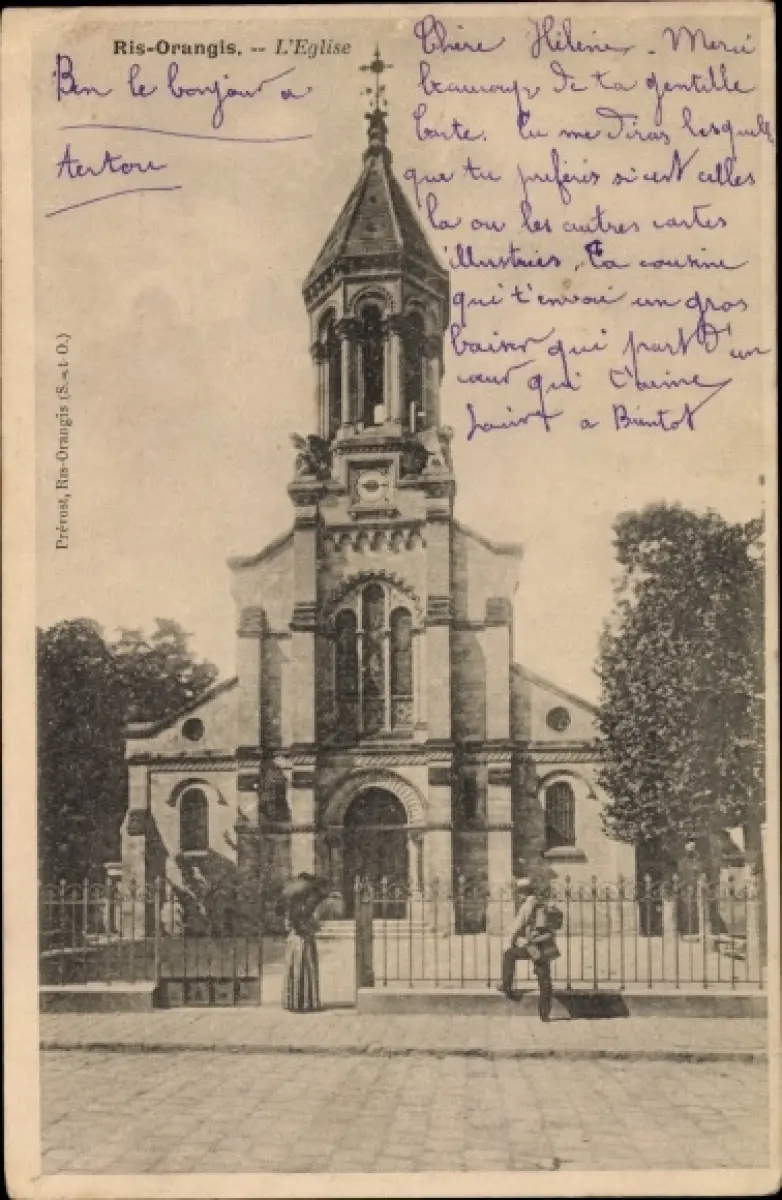 Ris-Orangis. -- L'Eglise
Bien le bonjour a
Chère Hélène. Merci
beaucoup de ta gentille
Carte. Tu me diras lesquelles
que tu préféres si cest celles
la ou les autres cartes
illustrées. Ta cousine
qui t'envoie un gros
baiser qui part d'un
cœur qui t'aime
a Bientot
Prévost, Ris-Orangis (S.-et-O.)